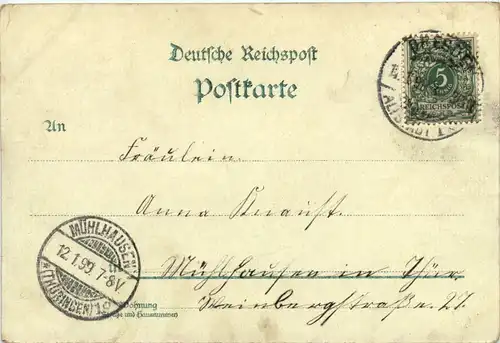 Deutsche Reichspost
Postkarte
DRESDEN
ALTSTADT 1
5
REICHSPOST
An
Fräulein
Anna Knaust.
MÜHLHAUSEN
12.1.99.7-8V
(THÜRINGEN) 1
Mühlhausen in Thür.
Wohnung
(Straße und Hausnummer)
Weinbergstraße 27.